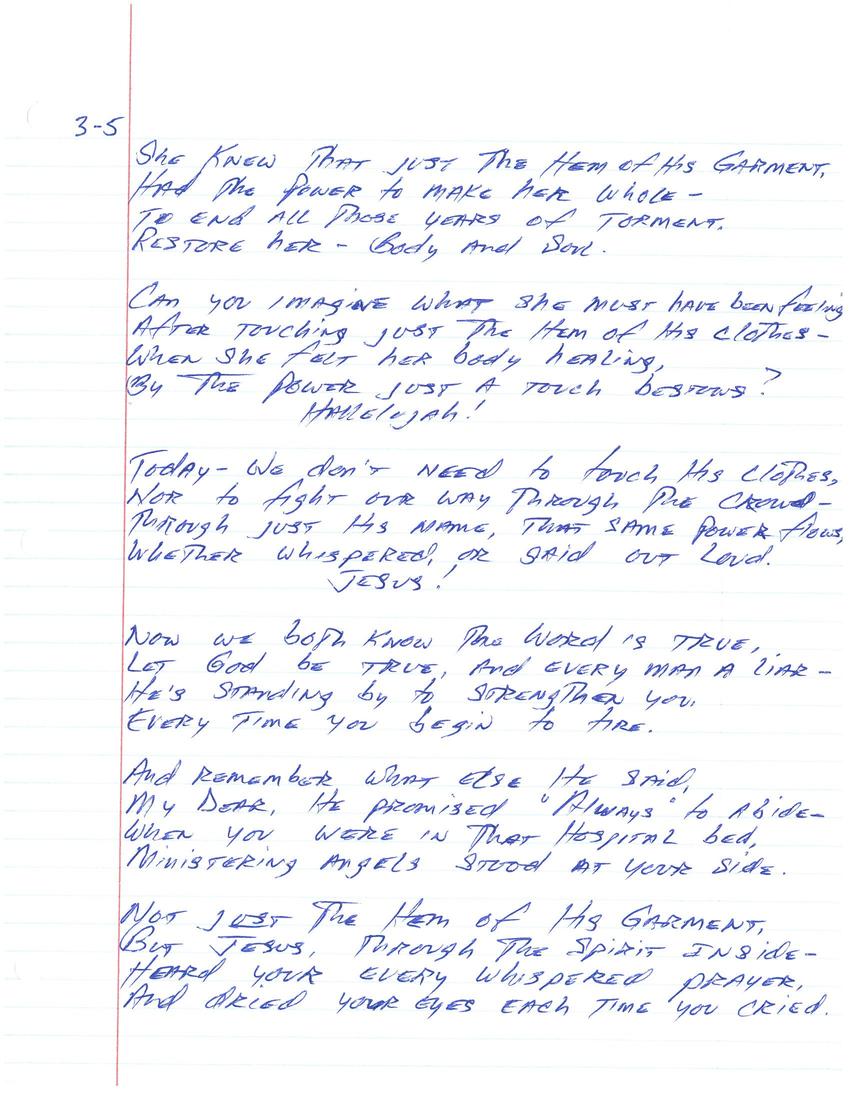 3-5
She Knew That just The Hem of His Garment,
Had The Power to make her whole -
To end all Those years of Torment.
Restore her - Body And Soul.
Can you imagine what she must have been feeling
After touching just The Hem of His clothes -
When she felt her body healing,
By The Power just a touch bestows?
Hallelujah!
Today - We don't need to touch His clothes,
Nor to fight our way Through The Crowd -
Through just His name, That same power flows,
Whether whispered, or said out loud.
Jesus!
Now we both know The Word is True,
Let God be True, And every man a liar -
He's standing by to strengthen you,
Every Time you begin to tire.
And remember what else He said,
My Dear, He promised "Always" to Abide -
When you were in That Hospital bed,
Ministering Angels stood at your side.
Not just The Hem of His Garment,
But Jesus, Through The Spirit Inside -
Heard your every whispered prayer,
And dried your eyes each time you cried.